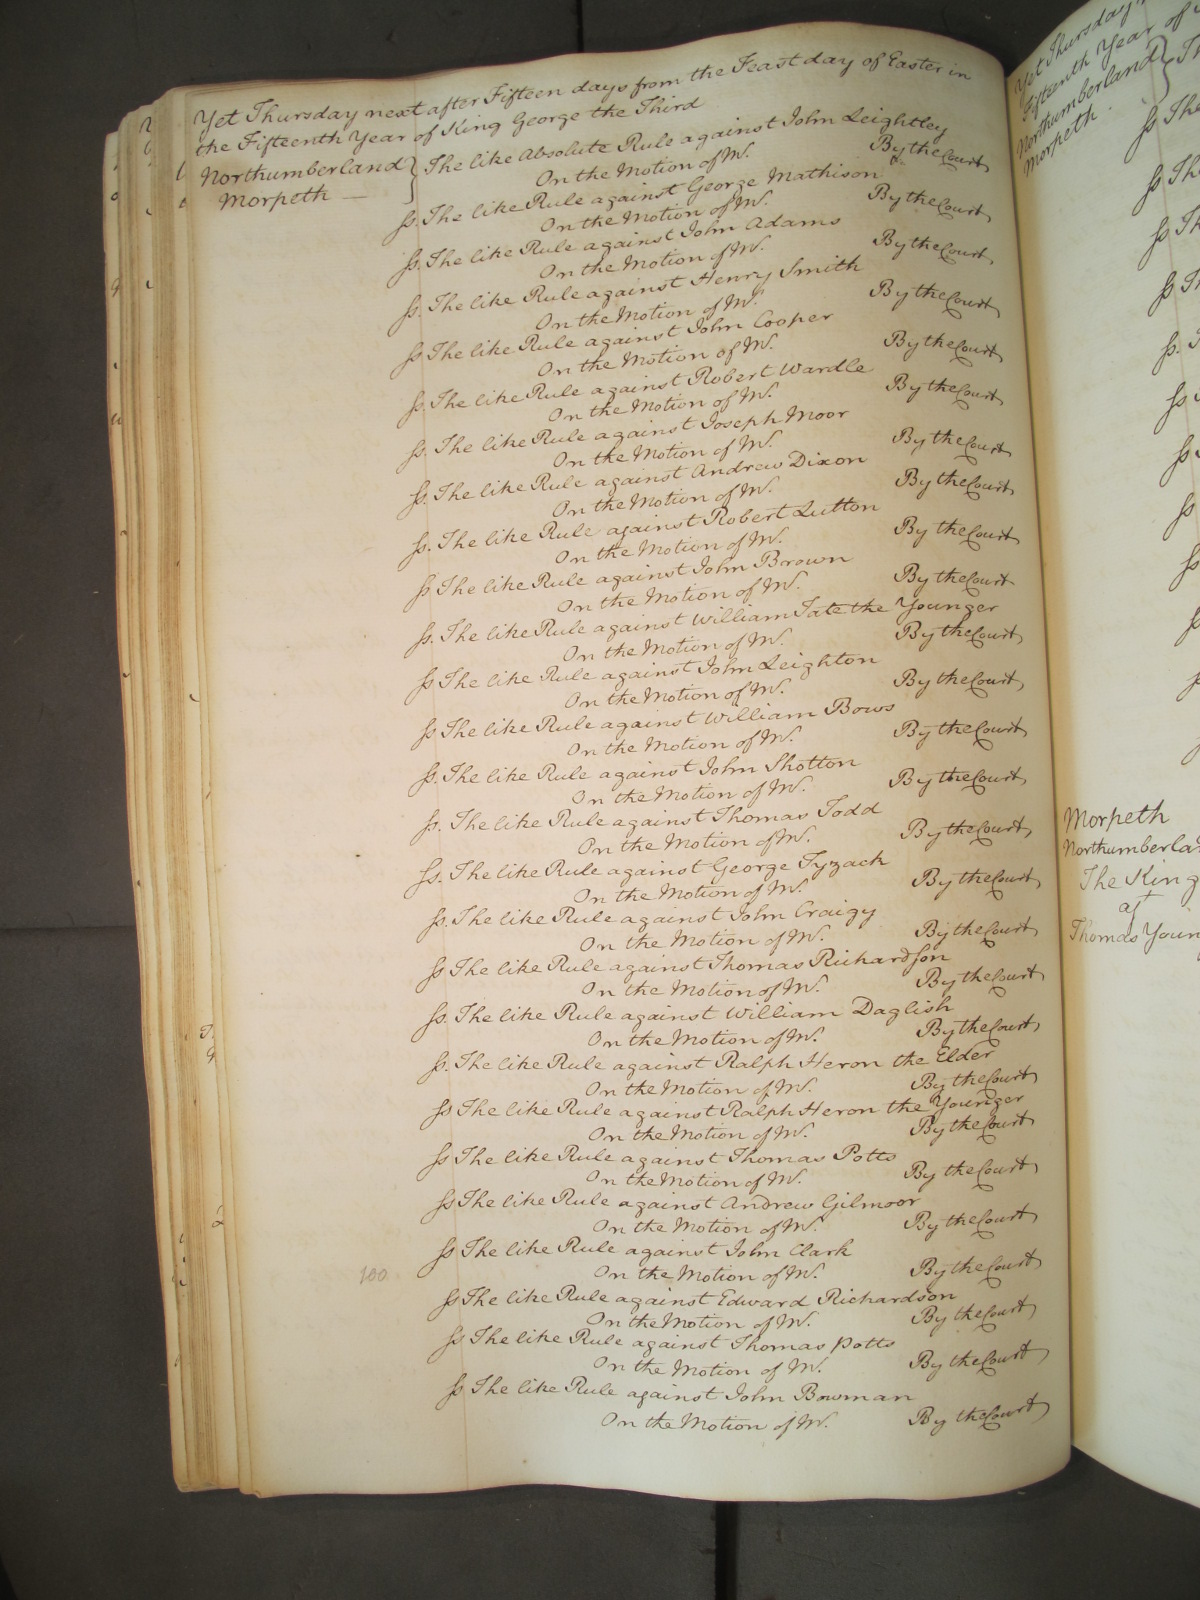 Yet Thursday next after Fifteen days from the Feast day of Easter in
the Fifteenth Year of King George the Third
Northumberland } The like Absolute Rule against John Leightley
Morpeth — On the Motion of Mr. By the Court
ss. The like Rule against George Mathison
On the Motion of Mr. By the Court
ss. The like Rule against John Adams
On the Motion of Mr. By the Court
ss. The like Rule against Henry Smith
On the Motion of Mr. By the Court
ss The like Rule against John Cooper
On the Motion of Mr. By the Court
ss. The like Rule against Robert Wardle
On the Motion of Mr. By the Court
ss. The like Rule against Joseph Moor
On the Motion of Mr. By the Court
ss. The like Rule against Andrew Dixon
On the Motion of Mr. By the Court
ss. The like Rule against Robert Lutton
On the Motion of Mr. By the Court
ss The like Rule against John Brown
On the Motion of Mr. By the Court
ss. The like Rule against William Tate the Younger
On the Motion of Mr. By the Court
ss The like Rule against John Leighton
On the Motion of Mr. By the Court
ss The like Rule against William Bows
On the Motion of Mr. By the Court
ss. The like Rule against John Shotton
On the Motion of Mr. By the Court
ss. The like Rule against Thomas Todd
On the Motion of Mr. By the Court
ss. The like Rule against George Tyzack
On the Motion of Mr. By the Court
ss. The like Rule against John Craigy
On the Motion of Mr. By the Court
ss The like Rule against Thomas Richardson
On the Motion of Mr. By the Court
ss. The like Rule against William Daglish
On the Motion of Mr. By the Court
ss. The like Rule against Ralph Heron the Elder
On the Motion of Mr. By the Court
ss The like Rule against Ralph Heron the Younger
On the Motion of Mr. By the Court
ss The like Rule against Thomas Potts
On the Motion of Mr. By the Court
ss The like Rule against Andrew Gilmoor
On the Motion of Mr. By the Court
ss The like Rule against John Clark
100 On the Motion of Mr. By the Court
ss The like Rule against Edward Richardson
On the Motion of Mr. By the Court
ss The like Rule against Thomas Potts
On the Motion of Mr. By the Court
ss The like Rule against John Bowman
On the Motion of Mr. By the Court
Yet Thursday
Fifteenth Year of
Northumberland }
Morpeth
Morpeth
Northumberla
The King
agt
Thomas Youn